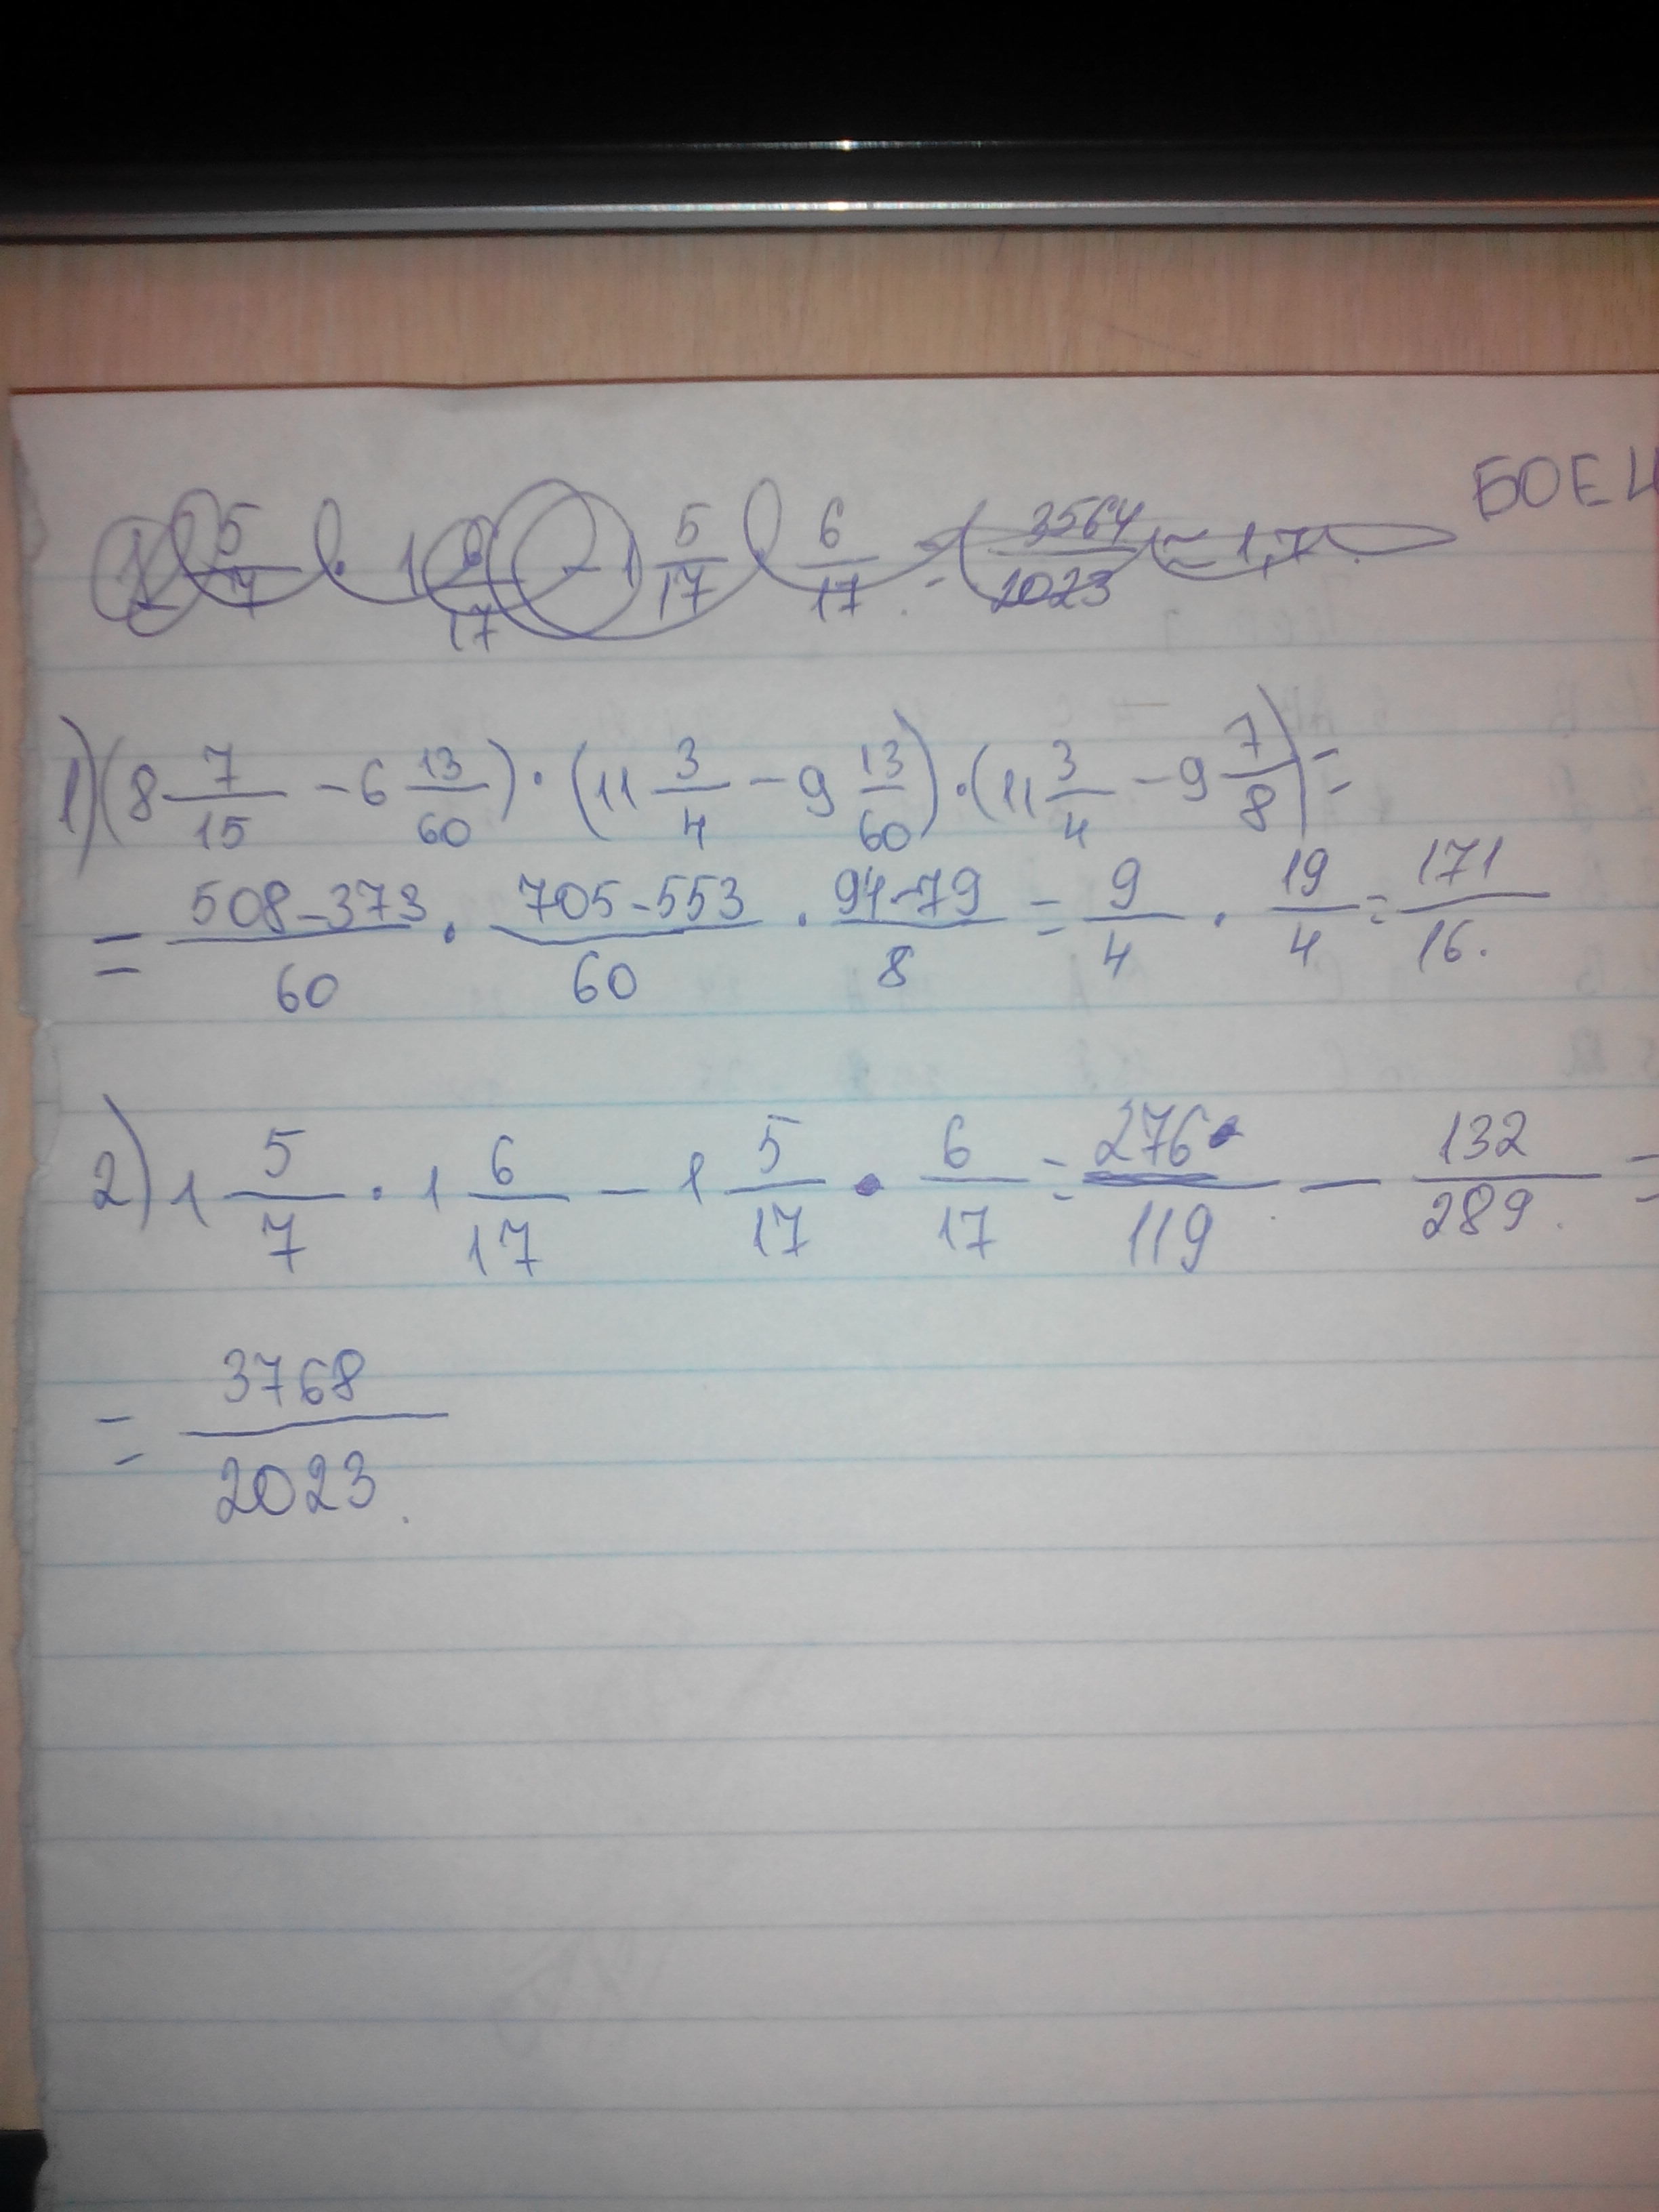 БОЕЦ
1 5/7 · 1 6/17 - 1 5/17 · 6/17 = 3564/2023 ≈ 1,7
1) (8 7/15 - 6 13/60) · (11 3/4 - 9 13/60) · (11 3/4 - 9 7/8) =
= 508-373/60 · 705-553/60 · 94-79/8 = 9/4 · 19/4 = 171/16.
2) 1 5/7 · 1 6/17 - 1 5/17 · 6/17 = 276/119 - 132/289 =
= 3768/2023.